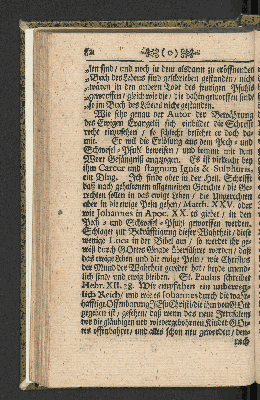 ( o )
„len sind/ und noch in dem alsdann zu eröffnenden
„Buch des Lebens sind geschrieben gestanden/ nicht
„wären in den andern Tode des feurigen Pfuhls
„geworffen/ gleich wie die/ die dahin geworffen sind
„se im Buch des Lebens nicht gestanden.
Wie sehr genau der Autor der Bewährung
des Ewigen Evangelii sich einbildet die Schrifft
recht einzusehen/ so schlecht bestehet er doch da-
mit. Er will die Erlösung aus dem Pech- und
Schwefel-Pfuhl beweisen/ und kommt mit dem
Meer Gefängniß angezogen. Es ist vielleicht bey
ihm Carcer und stagnum Ignis & Sulphuris,
ein Ding. Ich finde aber in der Heil. Schrifft
daß nach gehaltenem allgemeinen Gerichte/ die Ge-
rechten sollen in das ewige Leben/ die Ungerechten
aber in die ewige Pein gehen/ Matth. XXV. oder
wie Johannes in Apoc. XX. es giebet/ in den
Pech- und Schwefel-Pfuhl geworffen werden.
Schlagt zur Bekräfftigung dieser Wahrheit/ diese
wenige Loca in der Bibel auf/ so werdet ihr ge-
wiß durch GOttes Gnade überführet werden/ daß
das ewige Leben und die ewige Pein/ wie Christus
der Mund der Wahrheit geredet hat/ beyde unend-
lich sind/ und ewig bleiben. St. Paulus schreibet
Hebr. XII. 28. Wir empfahen ein unbeweg-
lich Reich/ und wie es Johannes durch die wahr-
hafftige Offenbarung JEsu Christi/ die ihm von GOtt
gegeben ist/ gesehen/ daß wenn das neue Jerusalem
vor die gläubigen und wiedergebohrnen Kinder GOt-
tes offenbahret/ und alles schon neu geworden/ den-
noch